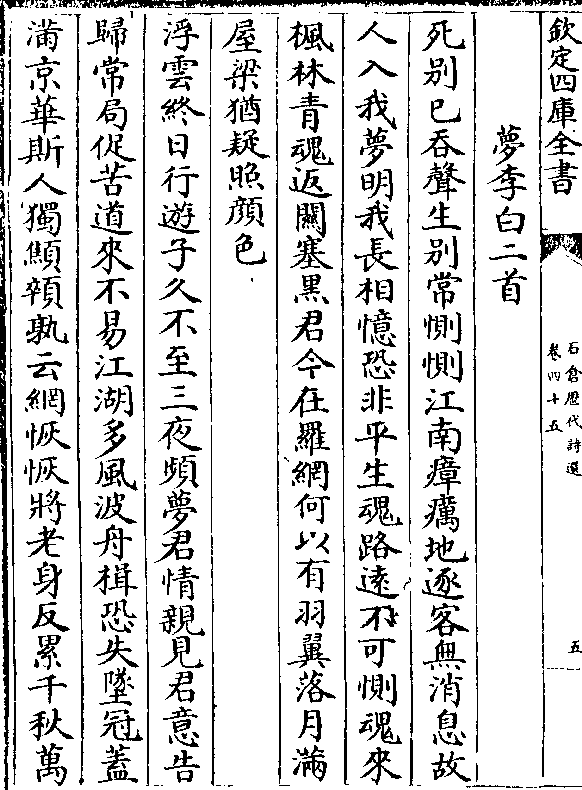 欽定四庫全書
石倉歴代詩選
卷四十五
五
夢李白二首
死别已吞聲生别常惻惻江南瘴癘地逐客無消息故
人入我夢明我長相憶恐非平生魂路遠不可惻魂來
楓林青魂返闗塞黑君今在羅網何以有羽翼落月滿
屋梁猶疑照顔色
浮雲終日行遊子久不至三夜頻夢君情親見君意告
歸常局促苦道來不易江湖多風波舟楫恐失墜冠蓋
滿京華斯人獨顦顇孰云網恢恢將老身反累千秋萬